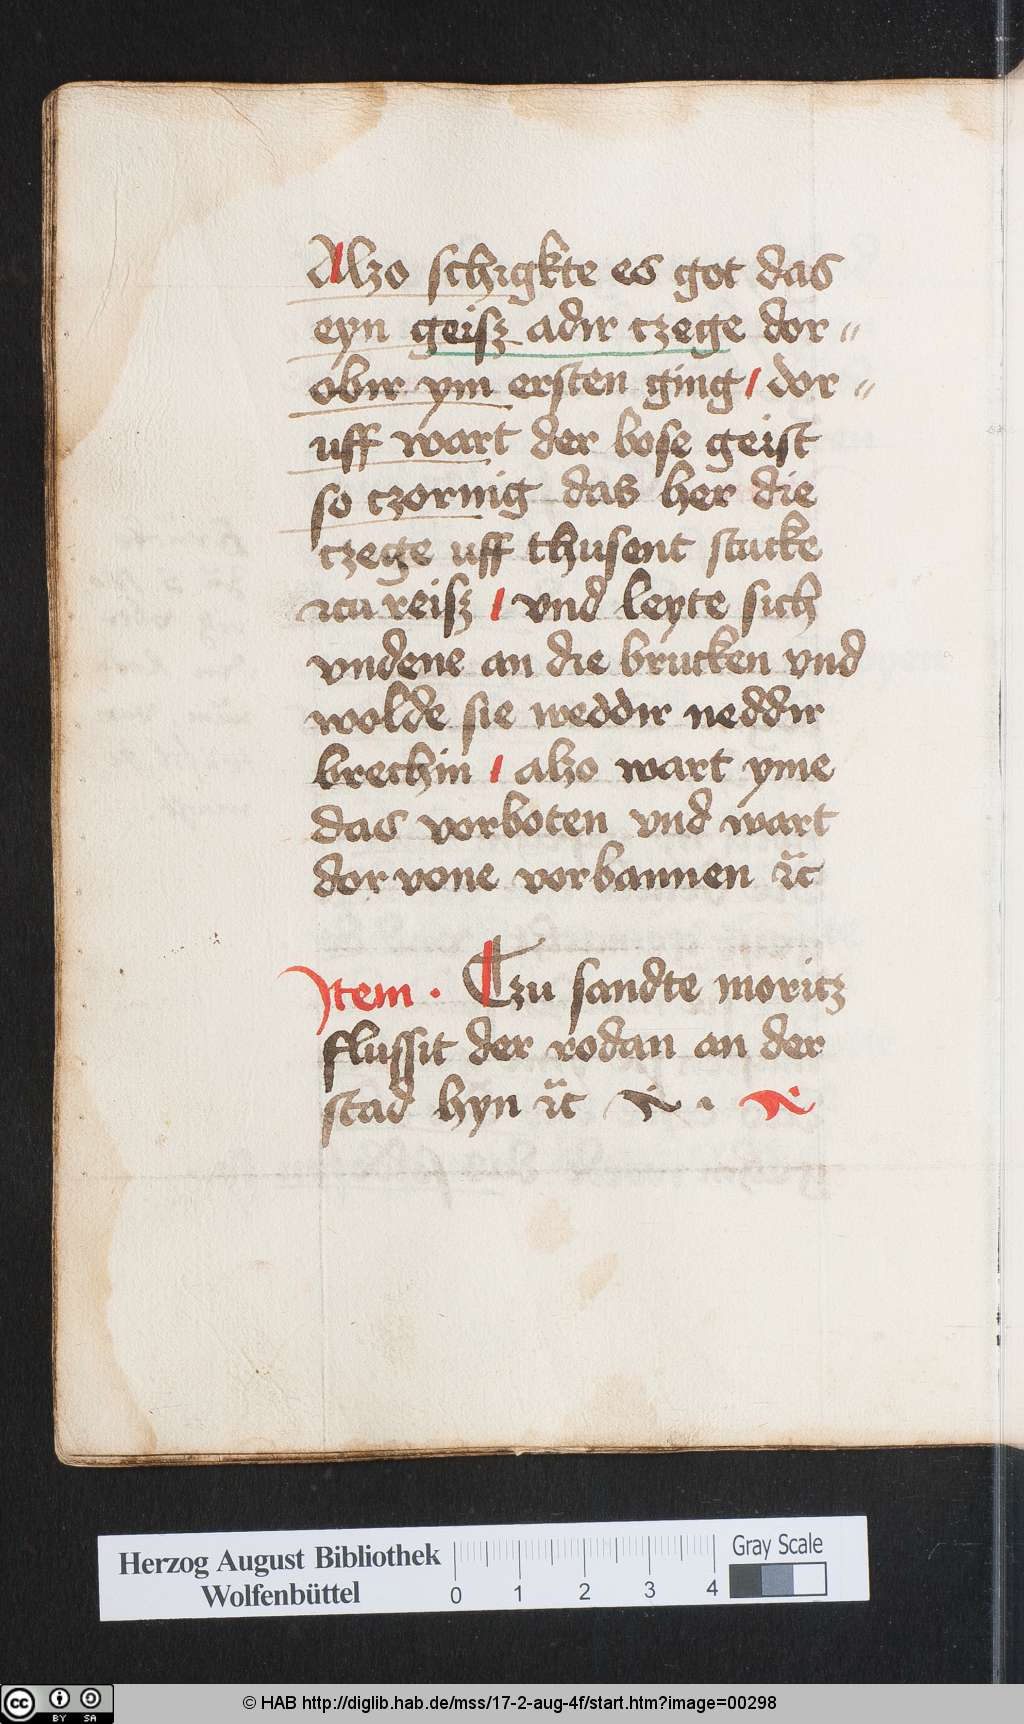 Alzo schigkte es got das
eyn geisz adir czege dor=
obir ym ersten ging / dor=
uff wart der bose geist
so czornig das her die
czege uff thusent stucke
zcureisz / vnd leyte sich
vndene an die brucken vnd
wolde sie weddir neddir
brechin / alzo wart yme
das vorboten vnd wart
dor vone vorbannen ꝛc̃
Item · Czu sandte moritz
flussit der rodan an der
stad hyn ꝛc̃
Herzog August Bibliothek
Wolfenbüttel
0 1 2 3 4
Gray Scale
cc BY SA
© HAB http://diglib.hab.de/mss/17-2-aug-4f/start.htm?image=00298